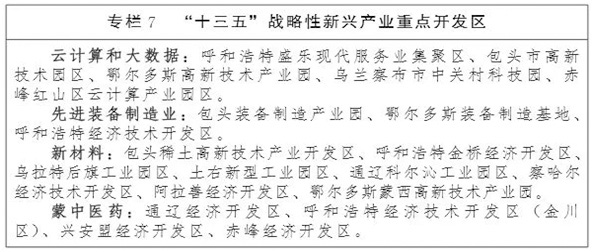 专栏 7 “十三五”战略性新兴产业重点开发区
云计算和大数据：呼和浩特盛乐现代服务业集聚区、包头市高新
技术园区、鄂尔多斯高新技术产业园、乌兰察布市中关村科技园、赤
峰红山区云计算产业园区。
先进装备制造业：包头装备制造产业园、鄂尔多斯装备制造基地、
呼和浩特经济技术开发区。
新材料：包头稀土高新技术产业开发区、呼和浩特金桥经济开发区、
乌拉特后旗工业园区、土右新型工业园区、通辽科尔沁工业园区、察哈尔
经济技术开发区、阿拉善经济开发区、鄂尔多斯蒙西高新技术产业园。
蒙中医药：通辽经济开发区、呼和浩特经济技术开发区（金川
区）、兴安盟经济开发区、赤峰经济开发区。